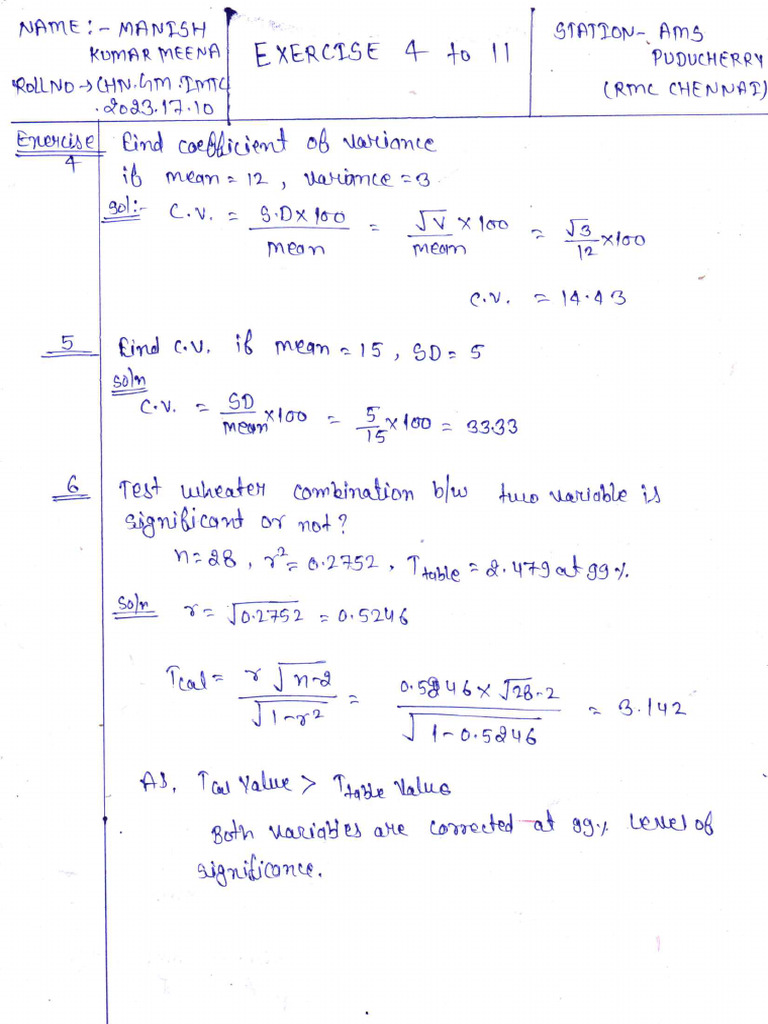 NAME:- MANISH
KUMAR MEENA
ROLL NO → CHN.GM.IMTC
.2023.17.10
EXERCISE 4 to 11
STATION- AMS
PUDUCHERRY
(RMC CHENNAI)
Exercise 4
Find coefficient of variance
if mean = 12, variance = 3.
Sol:- C.V. = S.D×100/mean = √V×100/mean = √3/12×100
C.V. = 14.43
5
Find C.V. if mean = 15, SD = 5
Soln
C.V. = SD/mean×100 = 5/15×100 = 33.33
6
Test wheater combination b/w two variable is
significant or not?
n=28, r²=0.2752, Ttable = 2.479 at 99%.
Soln r = √0.2752 = 0.5246
Tcal = r√n-2/√1-r² = 0.5246×√28-2/√1-0.5246 = 3.142
As, Tcal Value > Ttable Value
Both variables are corrected at 99% Level of
significance.